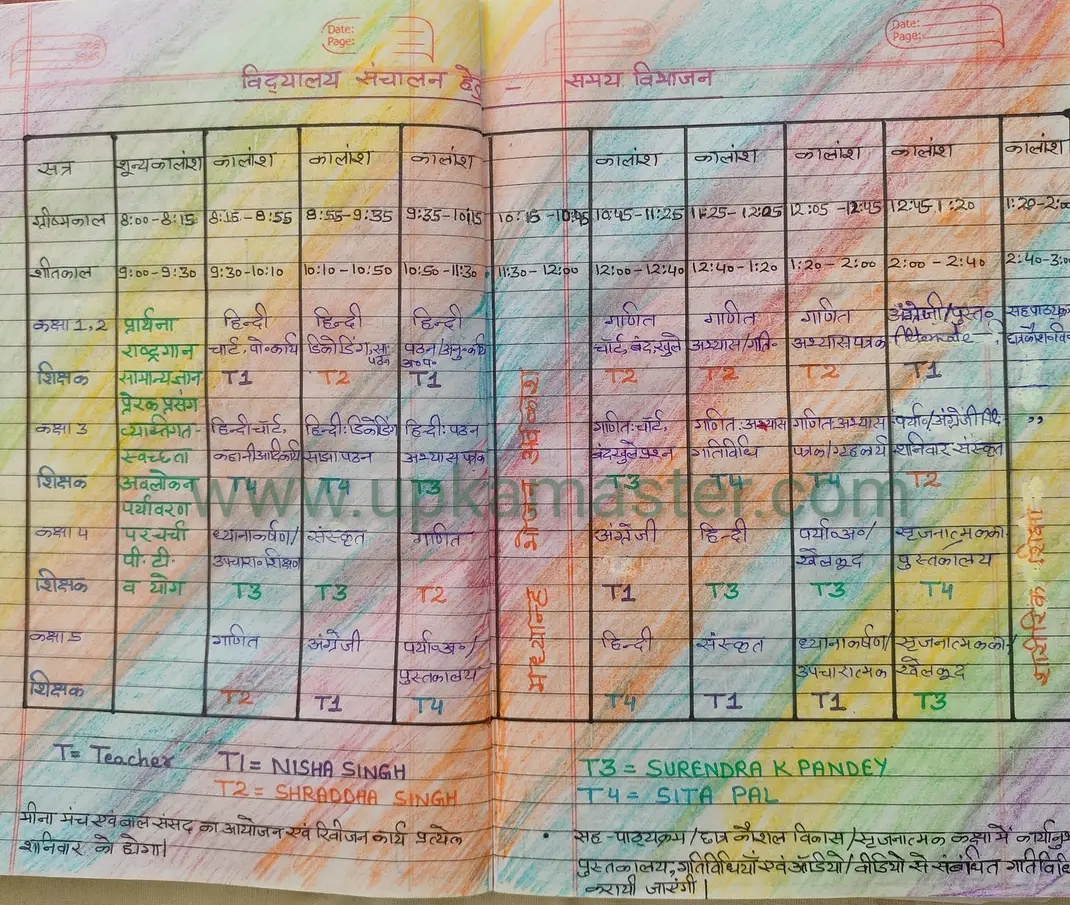 Date:
Page:
Date:
Page:
विद्यालय संचालन हेतु – समय विभाजन
सत्र शून्यकालांश कालांश कालांश कालांश कालांश कालांश कालांश कालांश कालांश
ग्रीष्मकाल 8:00-8:15 8:15-8:55 8:55-9:35 9:35-10:15 10:15-10:45 10:45-11:25 11:25-12:05 12:05-12:45 12:45-1:20 1:20-2:00
शीतकाल 9:00-9:30 9:30-10:10 10:10-10:50 10:50-11:30 11:30-12:00 12:00-12:40 12:40-1:20 1:20-2:00 2:00-2:40 2:40-3:00
कक्षा 1,2 प्रार्थना हिन्दी हिन्दी हिन्दी गणित गणित गणित अंग्रेजी/पुस्त०
राष्ट्रगान चार्ट, पो०कार्य डिकोडिंग, सा० पठन पठन/अनु०कार्य चार्ट, बंद,खुले अभ्यास/गति० अभ्यास पत्रक
शिक्षक सामान्यज्ञान T1 T2 T1 T2 T2 T2 T1
प्रेरक प्रसंग
कक्षा 3 व्यक्तिगत- हिन्दी चार्ट, हिन्दी: डिकोडिंग हिन्दी: पठन गणित: चार्ट, गणित: अभ्यास गणित: अभ्यास पर्या०/अंग्रेजी ,,
स्वच्छता कहानी आदि कार्य साझा पठन अभ्यास पत्रक बंद खुले प्रश्न गतिविधि पत्रक/गृहकार्य शनिवार संस्कृत
शिक्षक अवलोकन T4 T4 T3 T3 T4 T4 T2
पर्यावरण
कक्षा 4 परचर्चा ध्यानाकर्षण/ संस्कृत गणित अंग्रेजी हिन्दी पर्या०अ०/ सृजनात्मकका०
पी.टी. उपचारा० शिक्षण खेलकूद पुस्तकालय
शिक्षक व योग T3 T3 T2 T1 T3 T3 T4
कक्षा 5 गणित अंग्रेजी पर्या०अ०/ हिन्दी संस्कृत ध्यानाकर्षण/ सृजनात्मकका०/
पुस्तकालय उपचारात्मक खेलकूद
शिक्षक T2 T1 T4 T4 T1 T1 T3
मध्यान्ह भोजन अवकाश
शारीरिक शिक्षा
www.upkamaster.com
T= Teacher T1= NISHA SINGH
T2= SHRADDHA SINGH
T3 = SURENDRA K PANDEY
T4 = SITA PAL
मीना मंच एवं बाल संसद का आयोजन एवं रिवीजन कार्य प्रत्येक
शनिवार को होगा।
• सह-पाठ्यक्रम/छात्र कौशल विकास/सृजनात्मक कक्षा में
पुस्तकालय, गतिविधियाँ एवं ऑडियो/वीडियो से संबंधित
करायी जाएंगी।